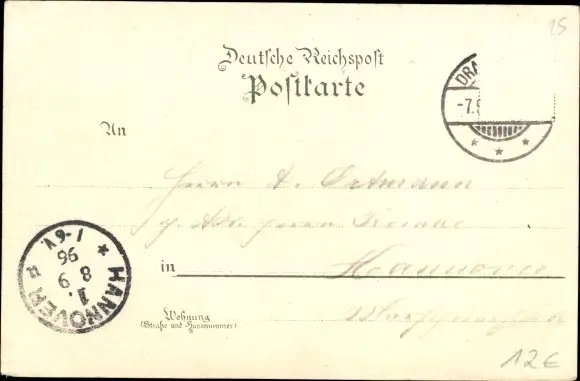 15
Deutsche Reichspost
Postkarte
DRA
-7.9
An
Herrn A. Ortmann
p. Adr. Herrn
in Hannover
Wohnung
(Straße und Hausnummer)
HANNOVER
1.
8 9
96
1-6V.
12€